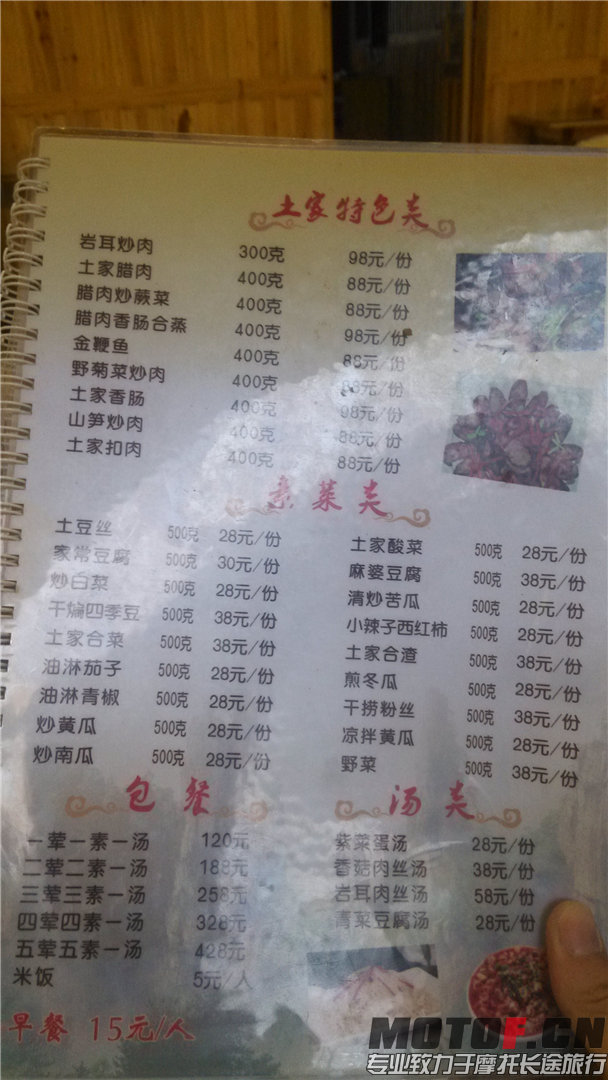 土家特色类
岩耳炒肉 300克 98元/份
土家腊肉 400克 88元/份
腊肉炒蕨菜 400克 88元/份
腊肉香肠合蒸 400克 98元/份
金鞭鱼 400克 88元/份
野菊菜炒肉 400克 88元/份
土家香肠 400克 98元/份
山笋炒肉 400克 88元/份
土家扣肉 400克 88元/份
素菜类
土豆丝 500克 28元/份
家常豆腐 500克 30元/份
炒白菜 500克 28元/份
干煸四季豆 500克 38元/份
土家合菜 500克 38元/份
油淋茄子 500克 28元/份
油淋青椒 500克 28元/份
炒黄瓜 500克 28元/份
炒南瓜 500克 28元/份
土家酸菜 500克 28元/份
麻婆豆腐 500克 38元/份
清炒苦瓜 500克 28元/份
小辣子西红柿 500克 28元/份
土家合渣 500克 38元/份
煎冬瓜 500克 28元/份
干捞粉丝 500克 38元/份
凉拌黄瓜 500克 28元/份
野菜 500克 38元/份
包餐
一荤一素一汤 120元
二荤二素一汤 188元
三荤三素一汤 258元
四荤四素一汤 328元
五荤五素一汤 428元
米饭 5元/人
早餐 15元/人
汤类
紫菜蛋汤 28元/份
香菇肉丝汤 38元/份
岩耳肉丝汤 58元/份
青菜豆腐汤 28元/份
MOTOF.CN
专业致力于摩托长途旅行